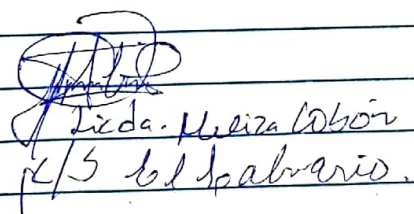 Licda. Meliza Cobón
C/S El Calvario.